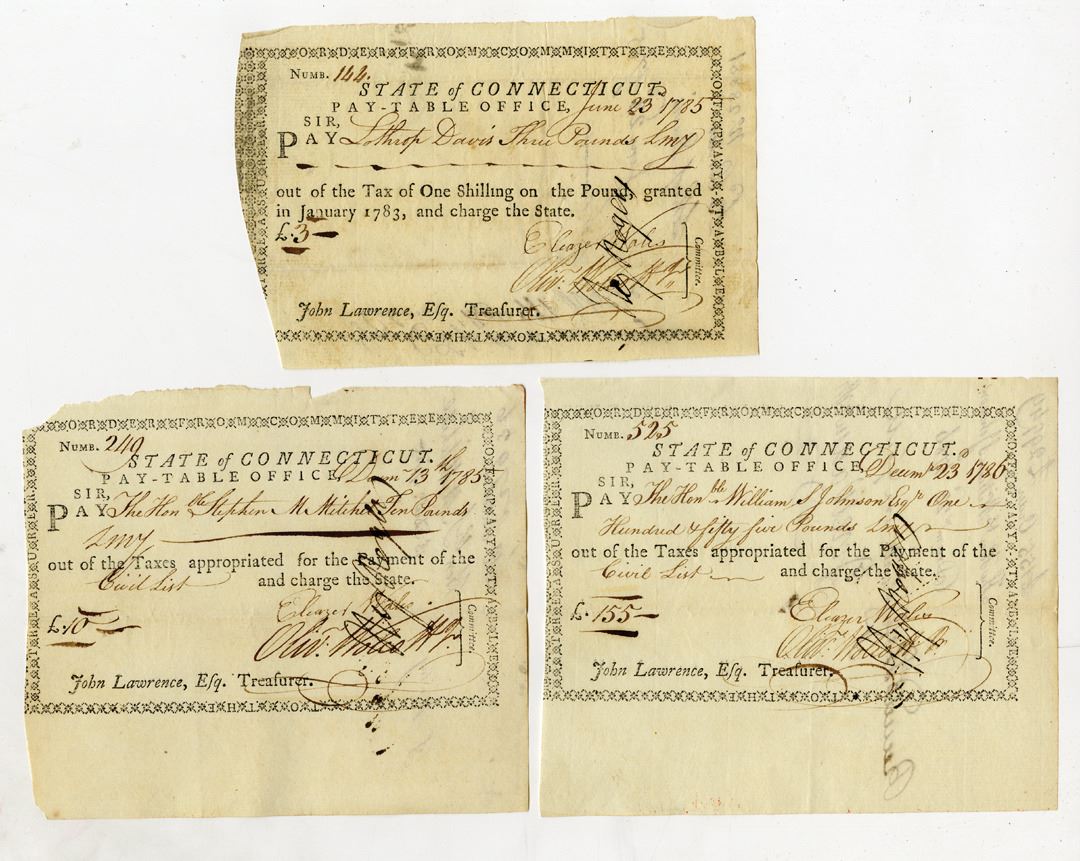 ORDER FROM COMMITTEE
OF PAY-TABLE
TO THE
TREASURER
NUMB. 144.
STATE of CONNECTICUT.
PAY-TABLE OFFICE, June 23 1785
SIR,
PAY Lothrop Davis Three Pounds Lmy
out of the Tax of One Shilling on the Pound, granted
in January 1783, and charge the State.
£.3
Eleazer Wales
Olivr. Wolcott Jr.
Committee.
John Lawrence, Esq. Treasurer.
ORDER FROM COMMITTEE
OF PAY-TABLE
TO THE
TREASURER
NUMB. 249
STATE of CONNECTICUT.
PAY-TABLE OFFICE, Decem 13th 1785
SIR,
PAY The Honble Stephen M Mitchel Ten Pounds
Lmy
out of the Taxes appropriated for the Payment of the
Civil List and charge the State.
£.10
Eleazer Wales
Olivr. Wolcott Jr.
Committee.
John Lawrence, Esq. Treasurer.
ORDER FROM COMMITTEE
OF PAY-TABLE
TO THE
TREASURER
NUMB. 525
STATE of CONNECTICUT.
PAY-TABLE OFFICE, Decemr 23 1786
SIR,
PAY The Honble William S Johnson Esqr One
Hundred & fifty five Pounds Lmy
out of the Taxes appropriated for the Payment of the
Civil List and charge the State.
£.155
Eleazer Wales
Olivr. Wolcott Jr.
Committee.
John Lawrence, Esq. Treasurer.